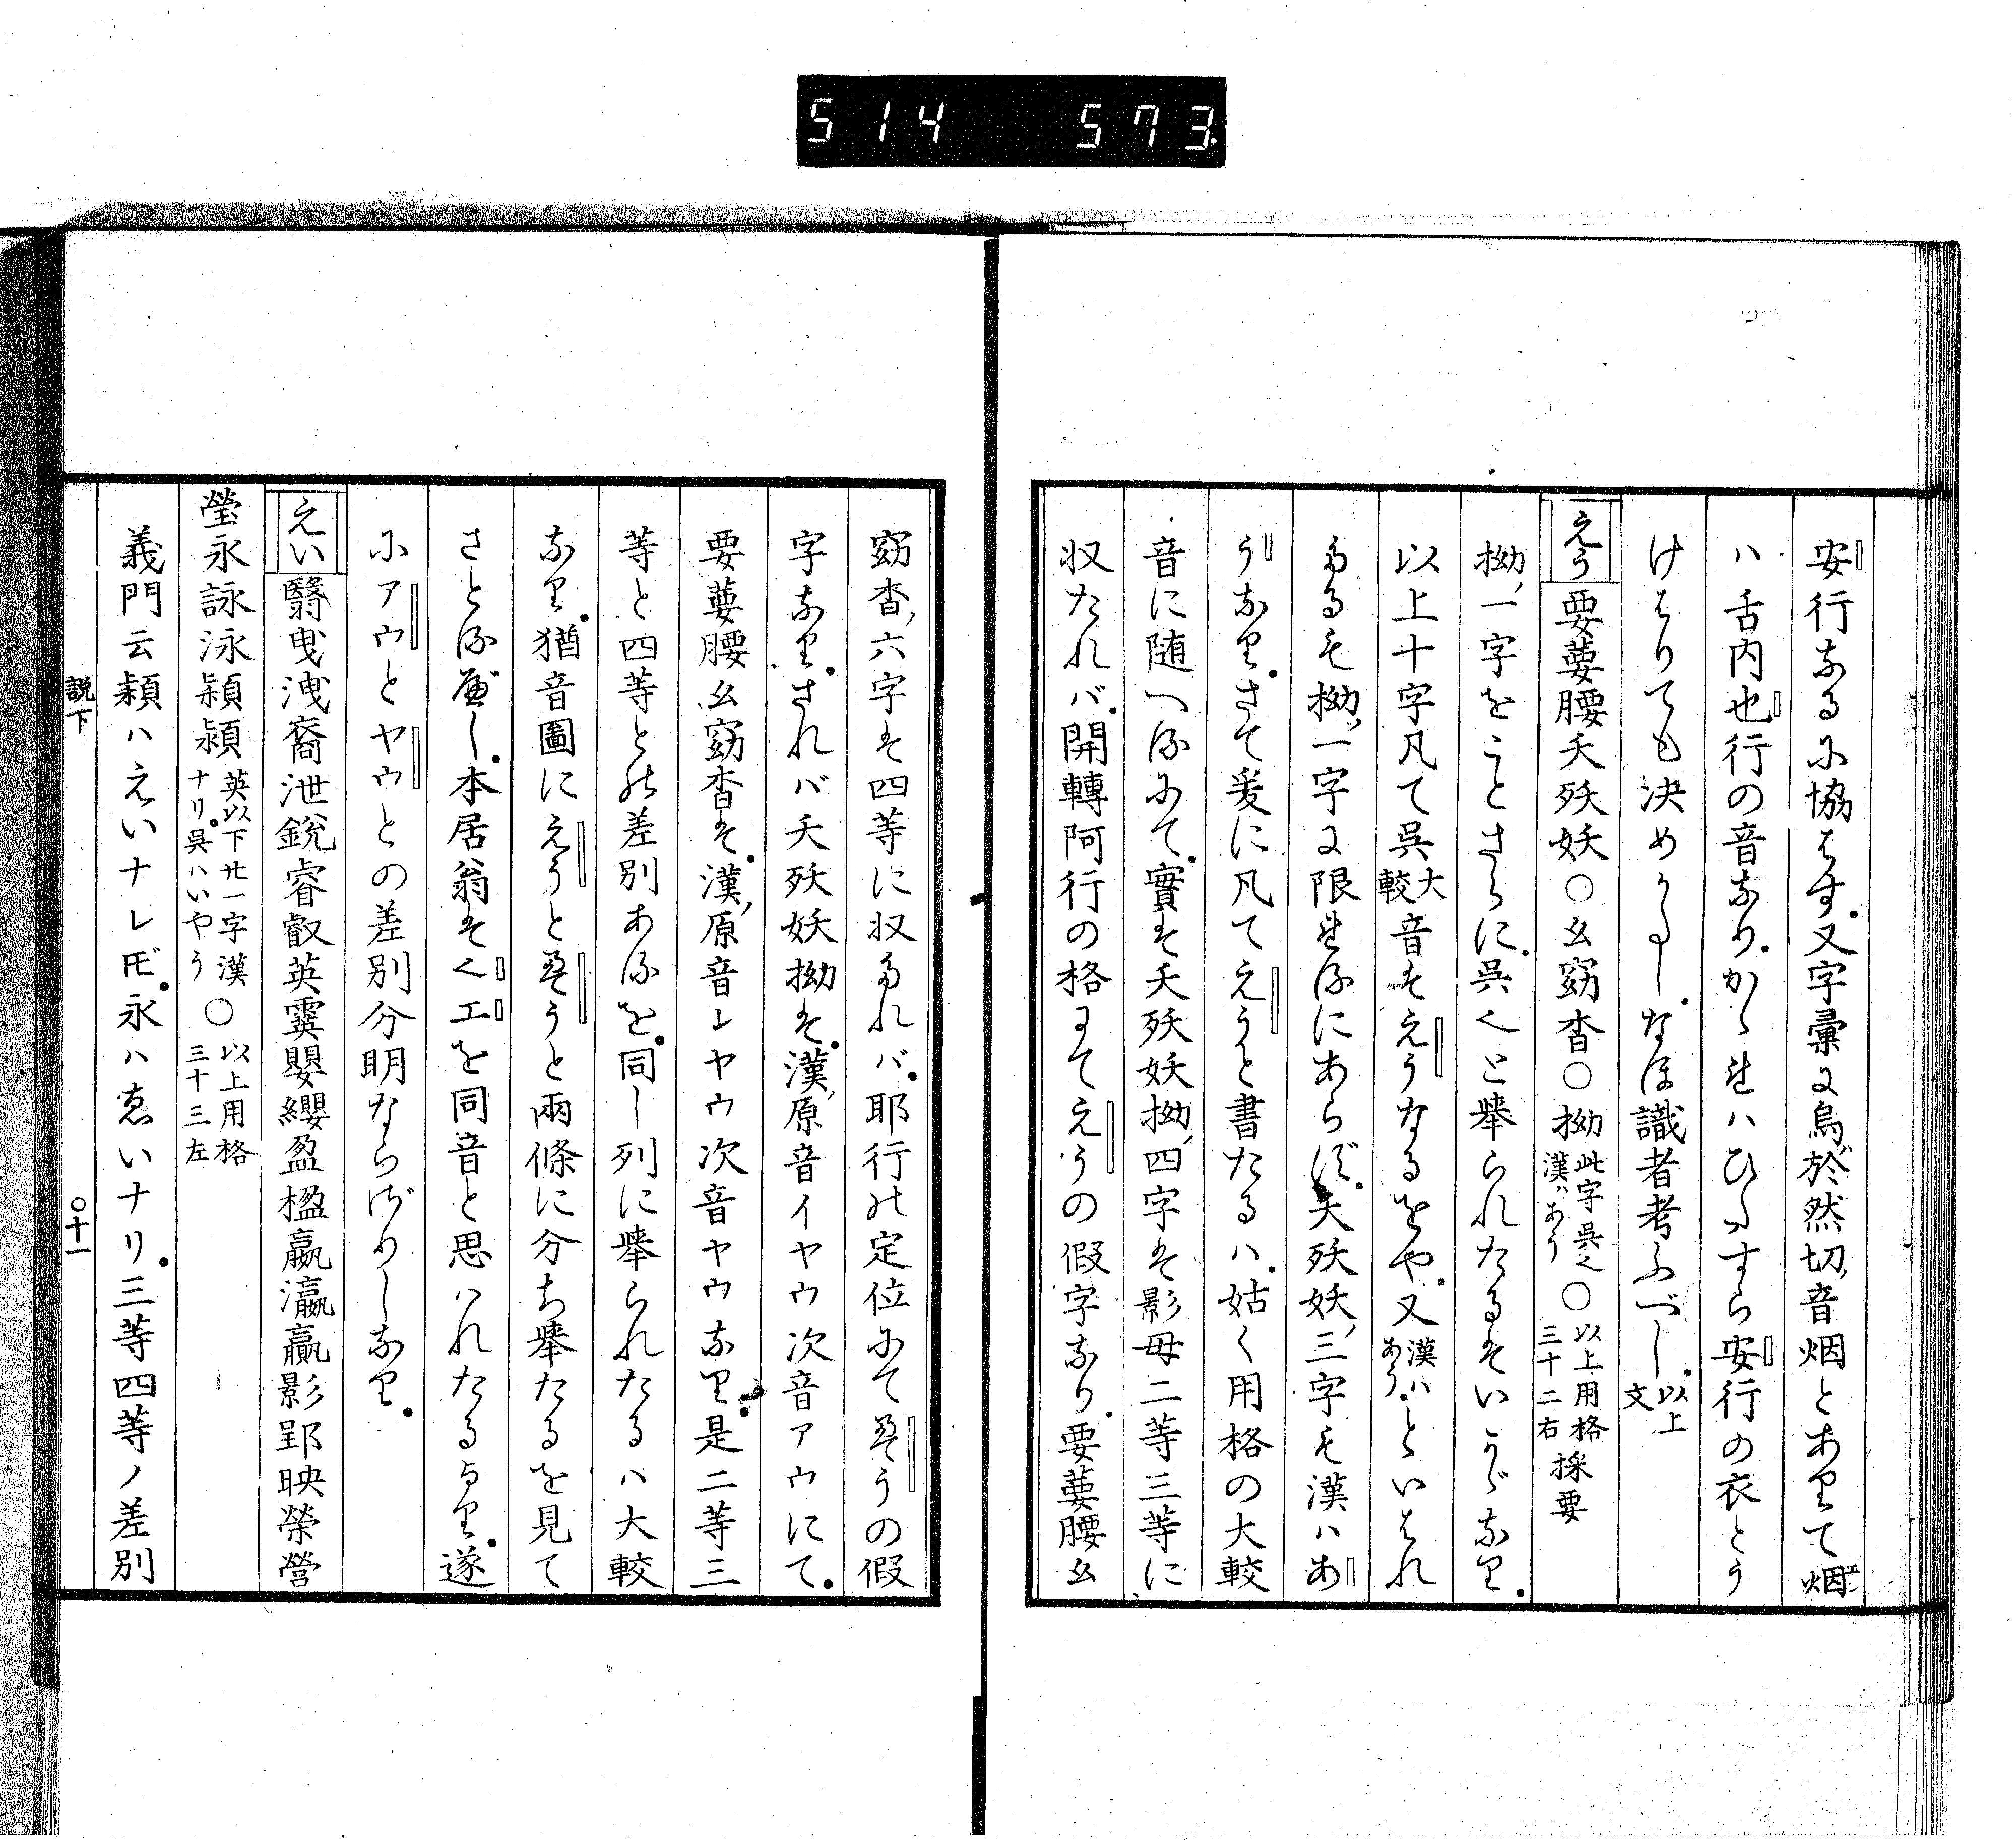 514 573
安行なるに協はす。又字彙に烏、於然切、音烟とありて烟エン
ハ舌内也行の音なり。かゝればハひたすら安行の衣とう
けはりても决めかたし。なほ識者考ふべし。以上文
えう 要葽腰夭殀妖〇幺窈杳〇拗此字呉く漢ハあう〇以上用格三十二右採要
拗、一字をことさらに。呉くと擧られたるはいかゞなり。
以上十字凡て呉大較音はえうなるをや。又漢ハあう。といはれ
たるも拗、一字に限れるにあらず。夭殀妖、三字も漢ハあ
うなり。さて爰に凡てえうと書たるハ。姑く用格の大較
音に随へるにて。實は夭殀妖拗、四字は影母二等三等に
収たれバ。開轉阿行の格にてえうの假字なり。要葽腰幺
窈杳、六字は四等に収たれバ。耶行の定位にて𛀁うの假
字なり。されバ夭殀妖拗は。漢、原音イヤウ次音アウにて。
要葽腰幺窈杳は。漢、原音レヤウ次音ヤウなり。是二等三
等と四等との差別あるを。同し列に擧られたるハ大較
なり。猶音圖にえうと𛀁うと兩條に分ち擧たるを見て
さとるべし。本居翁はくエを同音と思ハれたるより。遂
にアウとヤウとの差別分明ならざりしなり。
えい 翳曳洩裔泄銳睿叡英霙嬰纓盈楹嬴瀛贏影郢映榮營
瑩永詠泳潁穎英以下廿一字漢ナリ。呉ハいやう〇以上用格三十三左
義門云潁ハえいナレド。永ハゑいナリ。三等四等ノ差別
説下 〇十一